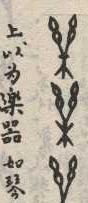 上以为楽器 如琴